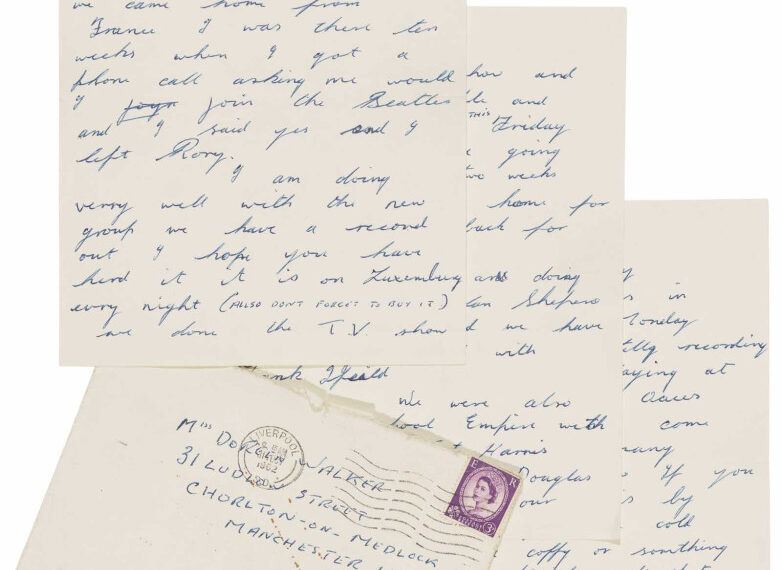 we came home from
France I was there ten
weeks when I got a
phone call asking me would
I join the Beatles
and I said yes and I
left Rory.
I am doing
verry well with the new
group we have a record
out I hope you have
herd it it is on Luxemburg
every night (ALLSO DON'T FORGET TO BUY IT)
we done the T.V show
how and
le and
THIS Friday
going
two weeks
home for
back for
and doing
an Shepero
d we have
with
nk Ifeild
We were also
pool Empire with
t Harris
Douglas
our
y
s in
Monday
tilly recording
aying at
Oacis
come
many
If you
s by
cold
coffy or somthing
Miss DOREEN WALKER
31 LUDLOW STREET
CHORLTON-ON-MEDLOCK
MANCHESTER
LIVERPOOL
1962
E R
3D